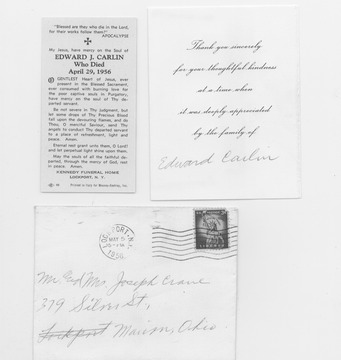 "Blessed are they who die in the Lord,
for their works follow them!"
APOCALYPSE
My Jesus, have mercy on the Soul of
EDWARD J. CARLIN
Who Died
April 29, 1956
O GENTLEST Heart of Jesus, ever
present in the Blessed Sacrament,
ever consumed with burning love for
the poor captive souls in Purgatory,
have mercy on the soul of Thy de-
parted servant.
Be not severe in Thy Judgment, but
let some drops of Thy Precious Blood
fall upon the devouring flames, and do
Thou, O merciful Saviour, send Thy
angels to conduct Thy departed servant
to a place of refreshment, light and
peace. Amen.
Eternal rest grant unto them, O Lord!
and let perpetual light shine upon them.
May the souls of all the faithful de-
parted, through the mercy of God, rest
in peace. Amen.
KENNEDY FUNERAL HOME
LOCKPORT, N. Y.
Thank you sincerely
for your thoughtful kindness
at a time when
it was deeply appreciated
by the family of
Edward Carlin
LOCKPORT, N.Y.
MAY 5
1956
LIBERTY
Mr. and Mrs. Joseph Crane
379 Silver St.,
Lockport Marion, Ohio.